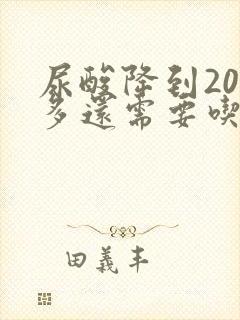 尿酸降到20
多還需要喫
田義丰